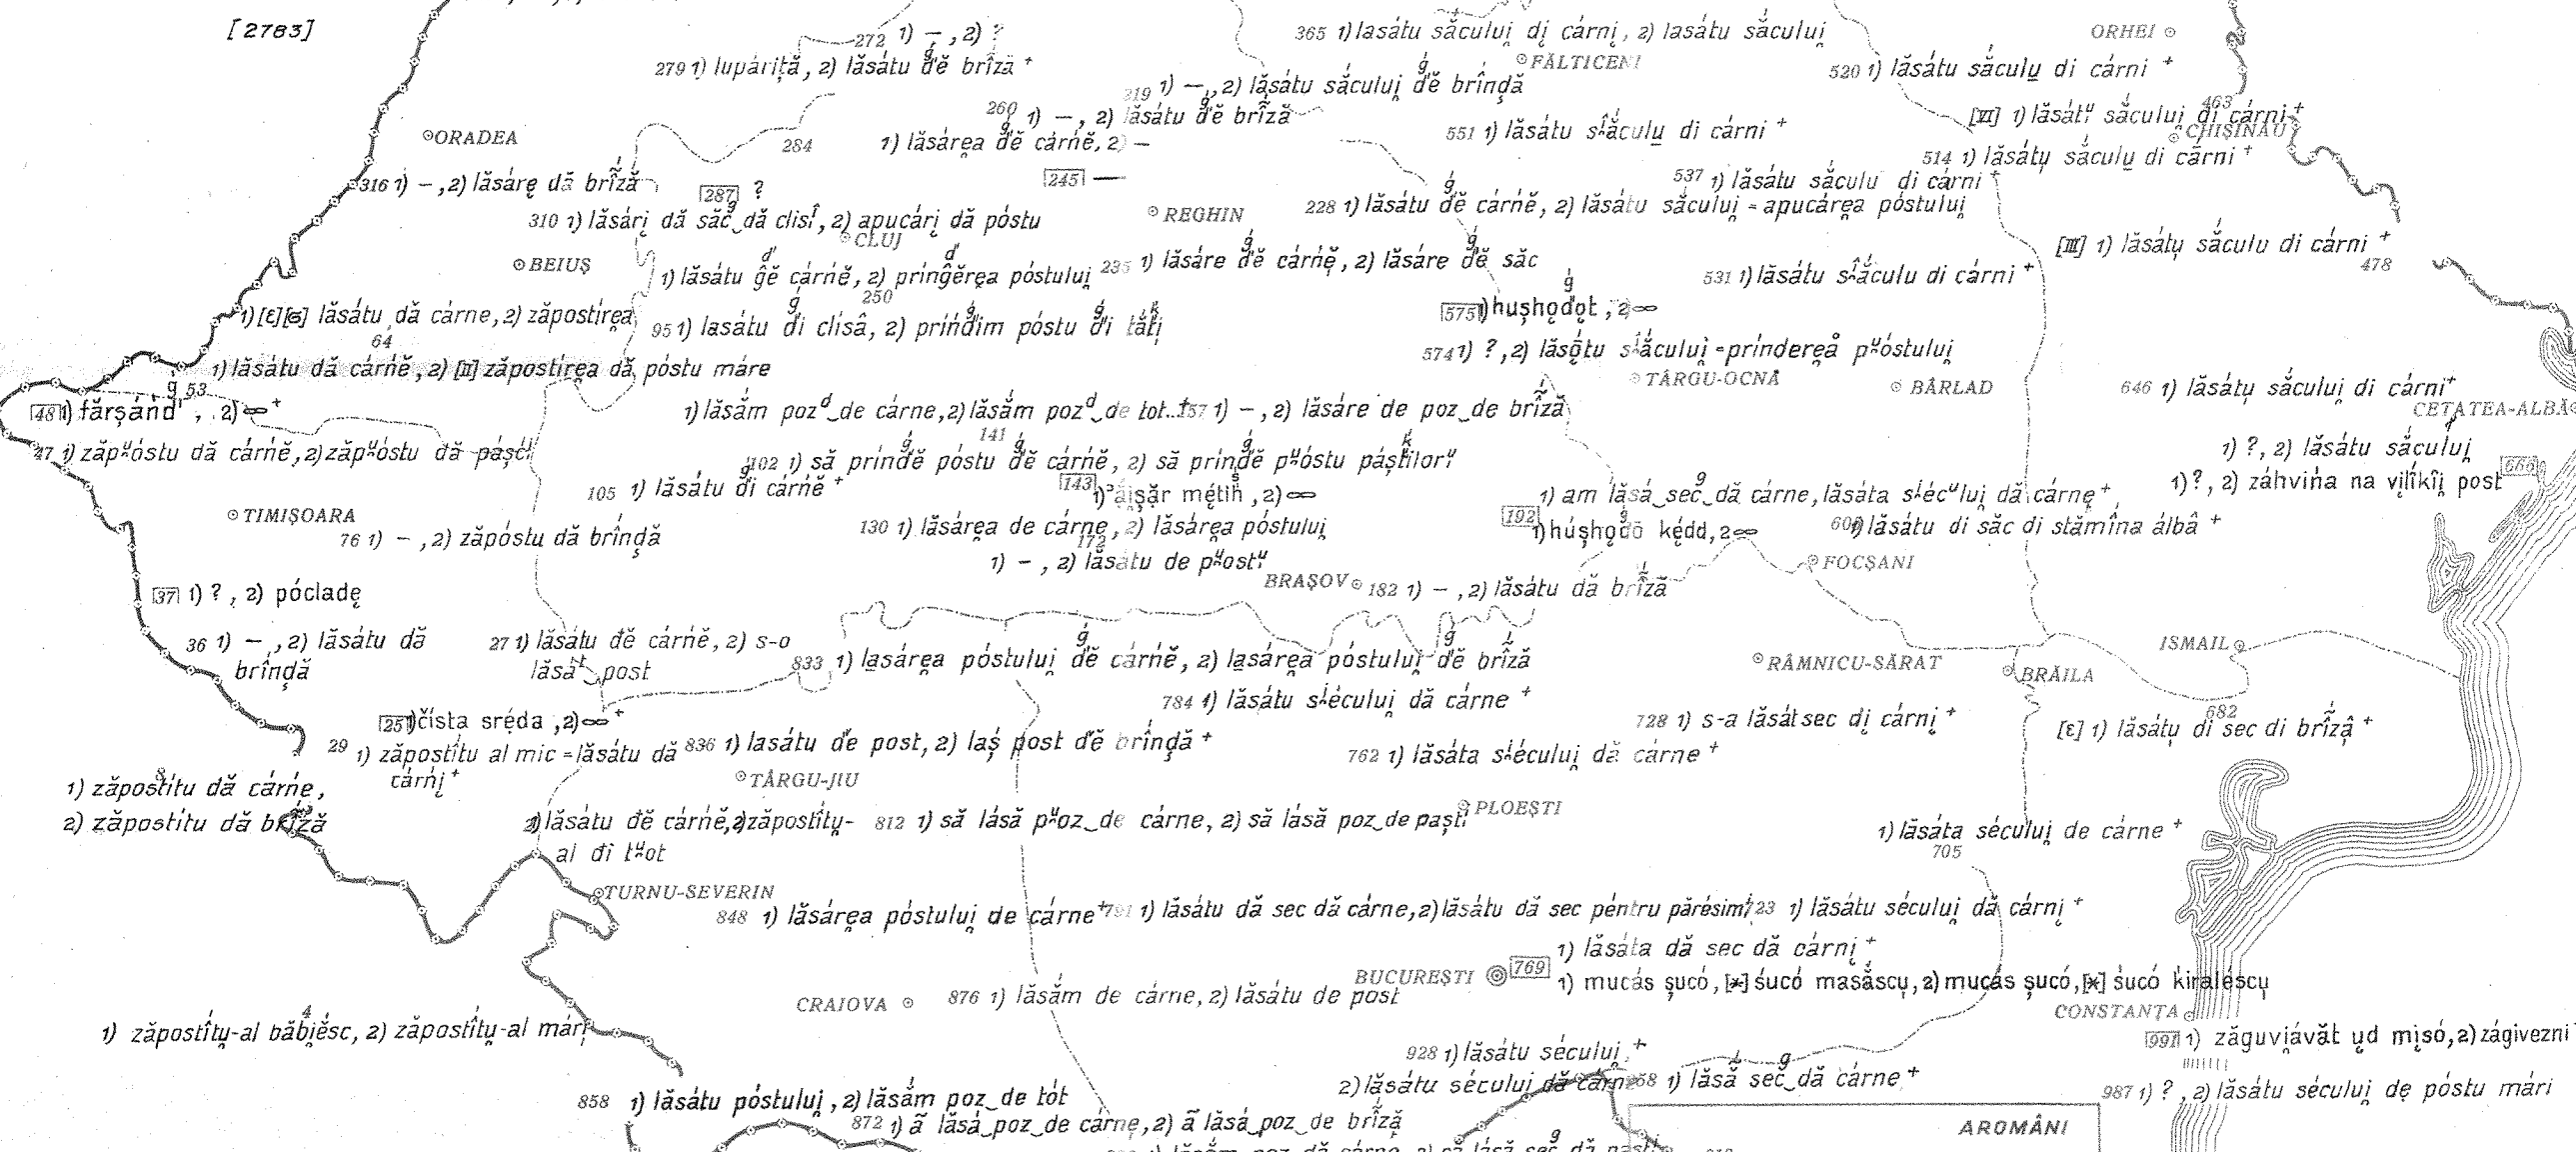 [2783]
272 1) – , 2) ?
365 1) lasátu sắculuị dị cárnị, 2) lasátu sắculuị
ORHEI
279 1) lupáriță, 2) lăsátu de brîză +
FĂLTICENI
520 1) lăsátu sắculu di cárni +
219 1) –, 2) lăsátu sắculuị dĕ brîndză
260 1) –, 2) lăsátu dĕ brîză
463
[VI] 1) lăsátu sắculuị di cárni +
CHIȘINĂU
ORADEA
284
1) lăsárẹa dĕ cárnĕ, 2) –
551 1) lăsátu sắculu di cárni +
514 1) lăsátu sắculu di cárni +
316 1) – , 2) lăsárẹ dă brîză
287 ?
245 —
537 1) lăsátu sắculu di cárni +
310 1) lăsárị dă săc‿dă clisî, 2) apucárị dă póstu
CLUJ
REGHIN
228 1) lăsátu dĕ cárnĕ, 2) lăsátu sắculuị = apucárẹa póstuluị
BEIUȘ
1) lăsátu ĝĕ cárnĕ, 2) prinĝĕrẹa póstuluị
250
235 1) lăsáre dĕ cárnẹ, 2) lăsáre dĕ săc
[III] 1) lăsátu sắculu di cárni +
478
531 1) lăsátu sắculu di cárni +
1) [ε][σ] lăsátu dă cárne, 2) zăpostírẹa
64
95 1) lasátu di clísâ, 2) príndim póstu di tắtị
575 1) hușhọdọt , 2) ∞
574 1) ?, 2) lăsộtu sắculuị = prindereå pᵘóstuluị
1) lăsátu dă cárnĕ, 2) [II] zăpostírẹa dă póstu máre
53
TÂRGU-OCNA
BÂRLAD
646 1) lăsátu sắculuị di cárni +
CETATEA-ALBĂ
48 1) fărșánd , 2) ∞ +
1) lăsắm pozᵈ‿de cárne, 2) lăsắm pozᵈ‿de tot.. +
141
157 1) –, 2) lăsáre de poz‿de brîză
47 1) zăpᵘóstu dă cárnĕ, 2) zăpᵘóstu dă páșci
102 1) să príndĕ póstu dĕ cárnĕ, 2) să príndĕ pᵘóstu páștilorᵘ
1) ?, 2) lăsátu sắculuị
666
1) ?, 2) záhvina na vilîkîị post
105 1) lăsátu di cárnĕ +
143 1) áișăr métih , 2) ∞
1) am lăsá‿sec‿dă cárne, lăsáta séculuị dă cárnẹ +
TIMIȘOARA
76 1) – , 2) zăpóstu dă brîndză
130 1) lăsárẹa de cárne, 2) lăsárẹa póstuluị
172
192 1) húșhọdō kẹ́dd, 2 ∞
1) lăsátu di săc di stămîna álbă +
1) – , 2) lăsátu de pᵘostᵘ
BRAȘOV
182 1) – , 2) lăsátu dă brîză
FOCȘANI
37 1) ? , 2) pócladẹ
36 1) – , 2) lăsátu dă
brîndză
27 1) lăsátu dĕ cárnĕ, 2) s-o
lăsát‿post
833 1) lasárẹa póstuluị dĕ cárnĕ, 2) lasárẹa póstuluị dĕ brîză
ISMAIL
RÂMNICU-SĂRAT
BRĂILA
784 1) lăsátu séculuị dă cárne +
251 1) čísta srẹ́da , 2) ∞ +
728 1) s-a lăsát sec dị cárnị +
682
[ε] 1) lăsátu di sec di brîză +
29 1) zăpostîtu al mic = lăsátu dă
cárnị +
836 1) lasátu de post, 2) laș post dĕ brîndză +
762 1) lăsáta séculuị dă cárne +
1) zăpostítu dă cárne,
2) zăpostítu dă brîză
8
TÂRGU-JIU
PLOEȘTI
1) lăsátu dĕ cárnĕ, 2) zăpostîtu-
al di tᵘot
812 1) să lásă pᵘoz‿de cárne, 2) să lásă poz‿de paști
1) lăsáta séculuị de cárne +
705
TURNU-SEVERIN
848 1) lăsárẹa póstuluị de cárne +
791 1) lăsátu dă sec dă cárne, 2) lăsátu dă sec péntru părésimị
723 1) lăsátu séculuị dă cárnị +
1) lăsáta dă sec dă cárnị +
BUCUREȘTI
769 1) mucás șucó, [*] șucó masắscu, 2) mucás șucó, [*] șucó kiraléscu
CRAIOVA
876 1) lăsắm de cárne, 2) lăsátu de post
CONSTANȚA
4
1) zăpostîtu-al băbiésc, 2) zăpostîtu-al mári
991 1) zăguviávăt ud misó, 2) zágivezni
928 1) lăsátu séculuị +
2) lăsátu séculuị dă cárne
1) lăsă sec‿dă cárne +
987 1) ? , 2) lăsátu séculuị dẹ póstu mári
858 1) lăsátu póstuluị , 2) lăsắm poz‿de tót
872 1) ã lăsá‿poz‿de cárne, 2) ã lăsá‿poz‿de brîză
AROMÂNI